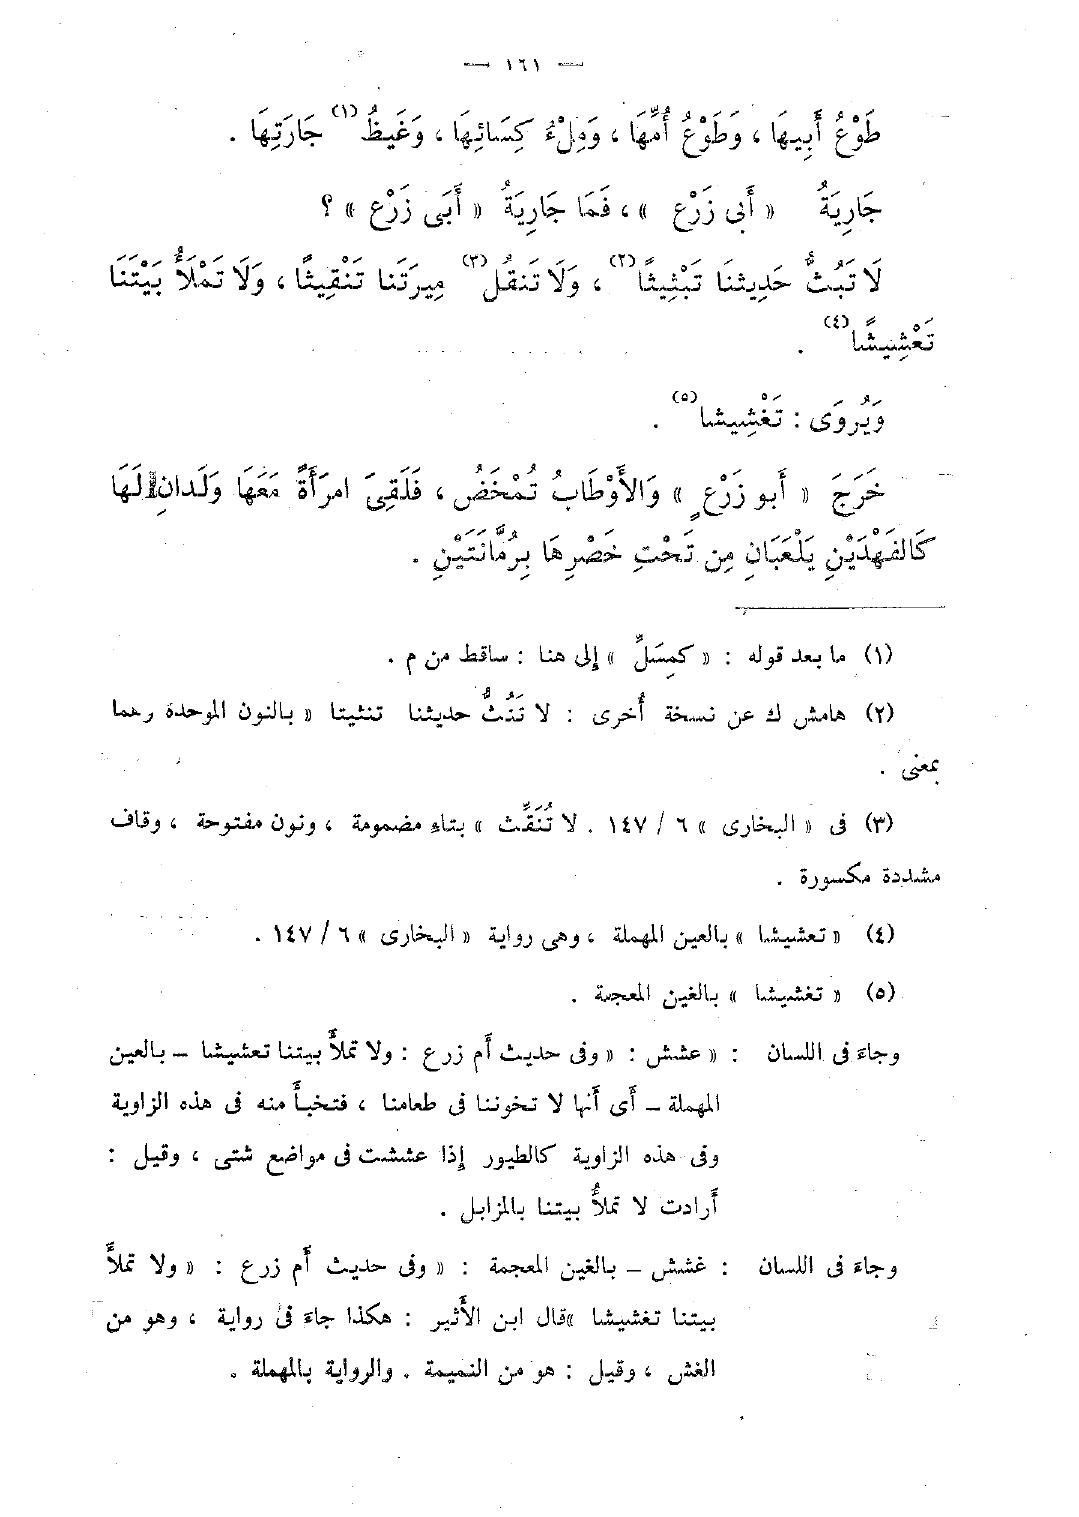 — ١٦١ —
طَوْعُ أَبِيهَا ، وَطَوْعُ أُمِّهَا ، وَمِلْءُ كِسَائِهَا ، وَغَيظُ(١) جَارَتِهَا .
جَارِيَةُ « أَبى زَرْع » ، فَمَا جَارِيَةُ « أَبَى زَرْع » ؟
لَا تَبُثُّ حَدِيثنَا تَبْثِيثًا(٢) ، وَلَا تَنقُل(٣) مِيرَتَنا تَنْقِيثًا ، وَلَا تَمْلَأُ بَيْتَنَا
تَعْشِيشًا(٤) .
وَيُروَى : تَغْشِيشا(٥) .
خَرَجَ « أَبو زَرْعٍ » وَالأَوْطَابُ تُمْخَضُ ، فَلَقِىَ امرَأَةً مَعَهَا وَلَدانِ لَهَا
كَالفَهْدَيْنِ يَلْعَبَانِ مِن تَحْتِ خَصْرِهَا بِرُمَّانَتَيْنِ .
(١) ما بعد قوله : « كمِسَلِّ » إلى هنا : ساقط من م .
(٢) هامش ك عن نسخة أُخرى : لا تَنُثُّ حديثنا تنثيثا « بالنون الموحدة وهما
بمعنى .
(٣) فى « البخارى » ٦ / ١٤٧ . لا تُنَقِّث » بتاءٍ مضمومة ، ونون مفتوحة ، وقاف
مشددة مكسورة .
(٤) « تعشيشا » بالعين المهملة ، وهى رواية « البخارى » ٦ / ١٤٧ .
(٥) « تغشيشا » بالغين المعجمة .
وجاءَ فى اللسان : « عشش : « وفى حديث أُم زرع : ولا تملأُ بيتنا تعشيشا – بالعين
المهملة – أى أَنها لا تخوننا فى طعامنا ، فتخبأَ منه فى هذه الزاوية
وفى هذه الزاوية كالطيور إذا عششت فى مواضع شتى ، وقيل :
أَرادت لا تملأُ بيتنا بالمزابل .
وجاءَ فى اللسان : غشش – بالغين المعجمة : « وفى حديث أُم زرع : « ولا تملأُ
بيتنا تغشيشا »قال ابن الأَثير : هكذا جاءَ فى رواية ، وهو من
الغش ، وقيل : هو من النميمة . والرواية بالمهملة .